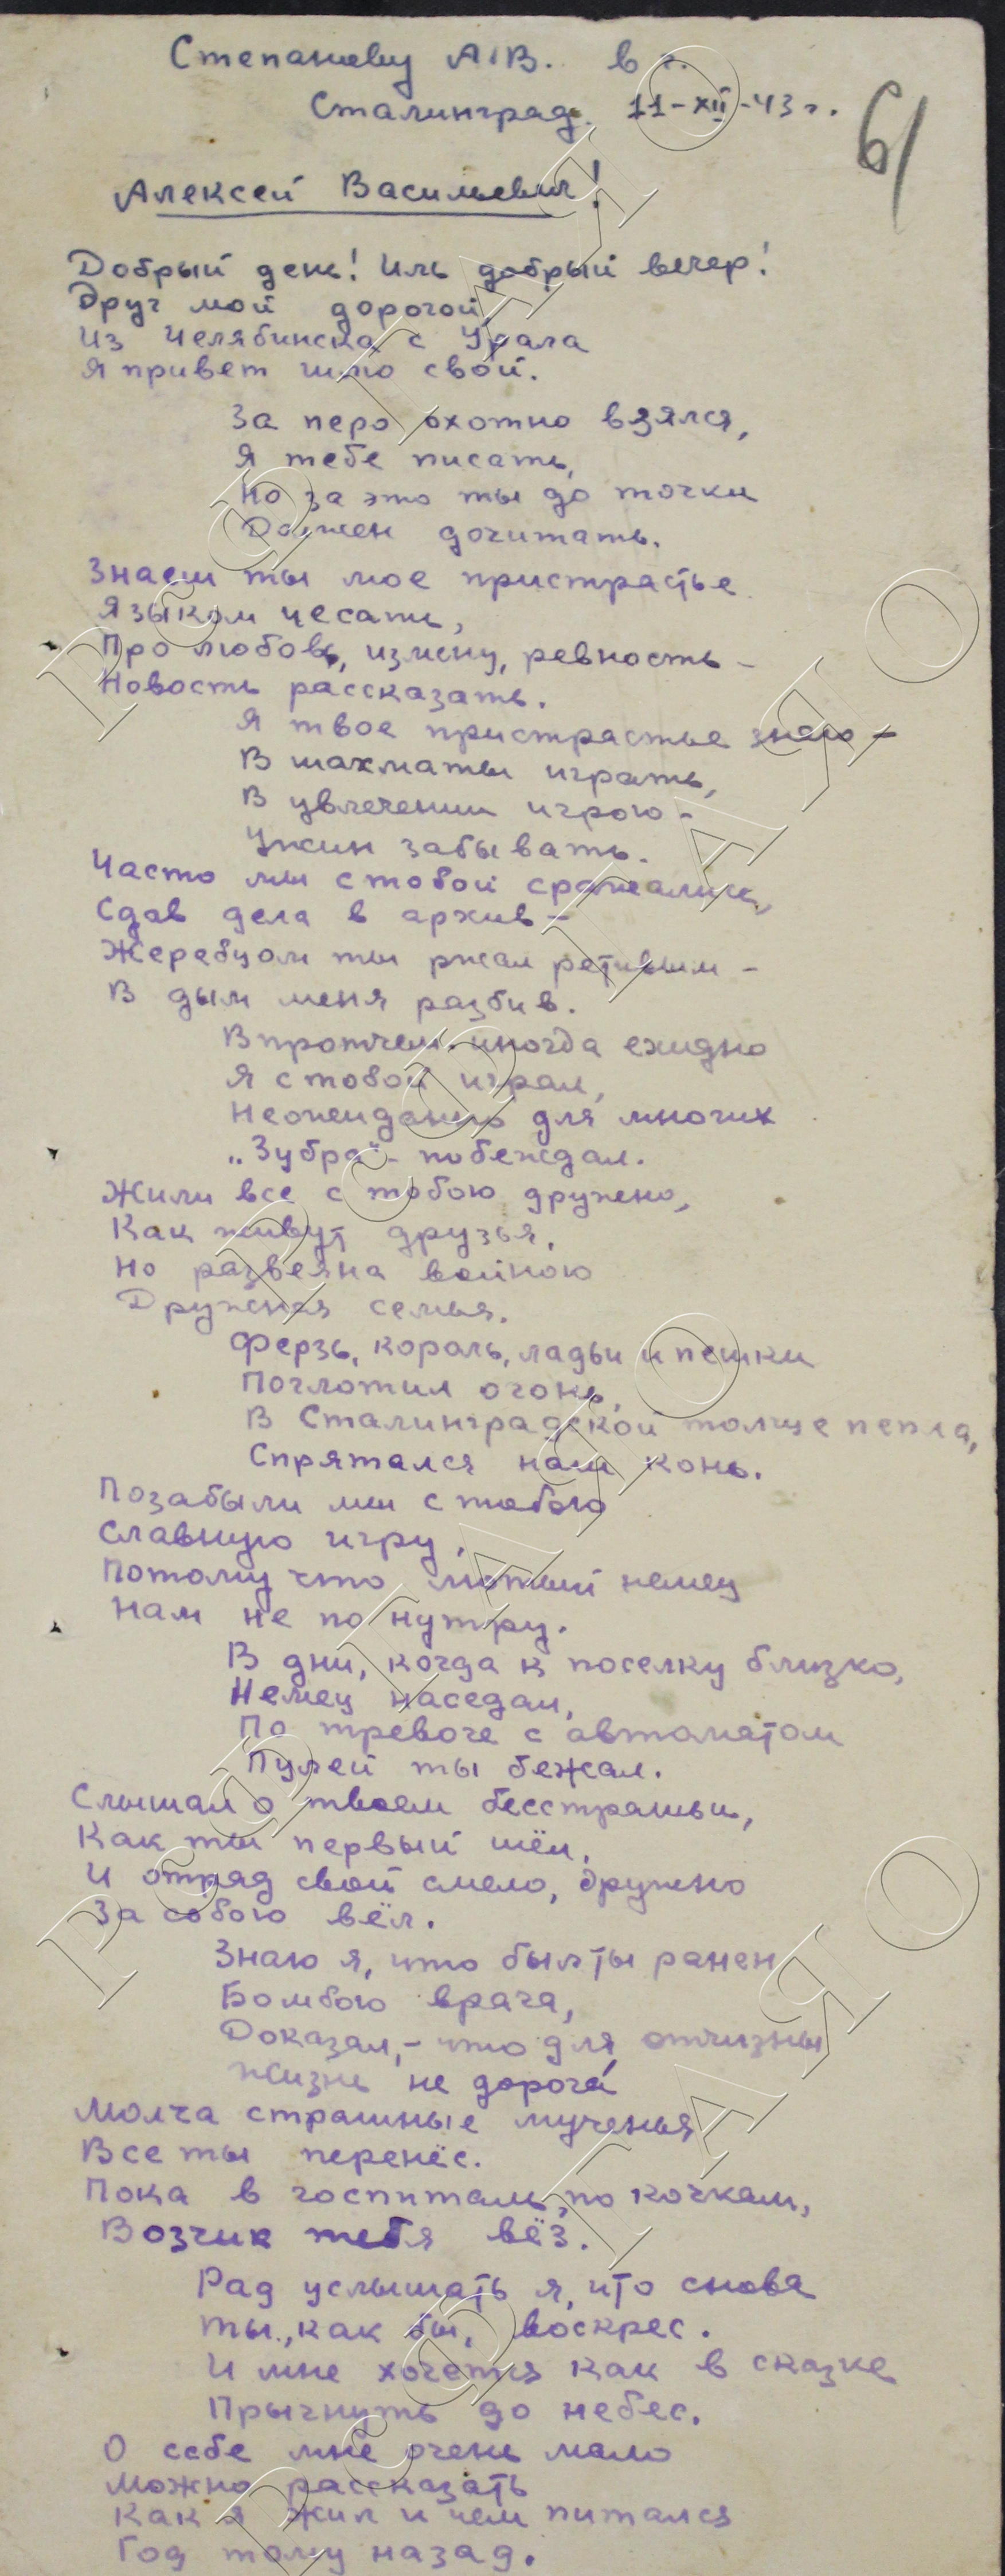 Степаневу А.В. в г.
Сталинград. 11-XII-43 г.
61
Алексей Васильевич!
Добрый день! Иль добрый вечер!
Друг мой дорогой,
Из Челябинска с Урала
Я привет шлю свой.
За перо охотно взялся,
Я тебе писать,
Но за это ты до точки
Должен дочитать.
Знаеш ты мое пристрастье
Языком чесать,
Про любовь, измену, ревность –
Новость рассказать.
Я твое пристрастье знаю –
В шахматы играть,
В увлечении игрою –
Ужин забывать.
Часто мы с тобой сражались,
Сдав дела в архив –
Жеребцом ты ржал ретивым –
В дым меня разбив.
Впротчем, иногда ехидно
Я с тобой играл,
Неожиданно для многих
„Зубра" – побеждал.
Жили все с тобою дружно,
Как живут друзья,
Но развеяна войною
Дружная семья.
Ферзь, король, ладьи и пешки
Поглотил огонь,
В Сталинградской толще пепла,
Спрятался наш конь.
Позабыли мы с тобою
Славную игру,
Потому что лютый немец
Нам не по нутру.
В дни, когда к поселку близко,
Немец наседал,
По тревоге с автоматом
Пулей ты бежал.
Слышал о твоем бесстрашьи,
Как ты первый шёл,
И отряд свой смело, дружно
За собою вёл.
Знаю я, что был ты ранен
Бомбою врага,
Доказал, – что для отчизны
Жизнь не дорога́
Молча страшные мученья
Все ты перенёс.
Пока в госпиталь, по кочкам,
Возчик тебя вёз.
Рад услышать я, что снова
Ты, как бы, воскрес.
И мне хочется как в сказке
Прыгнуть до небес.
О себе мне очень мало
Можно рассказать
Как я жил и чем питался
Год тому назад.
РГАЯО
РГАЯО
РГАЯО
РГАЯО